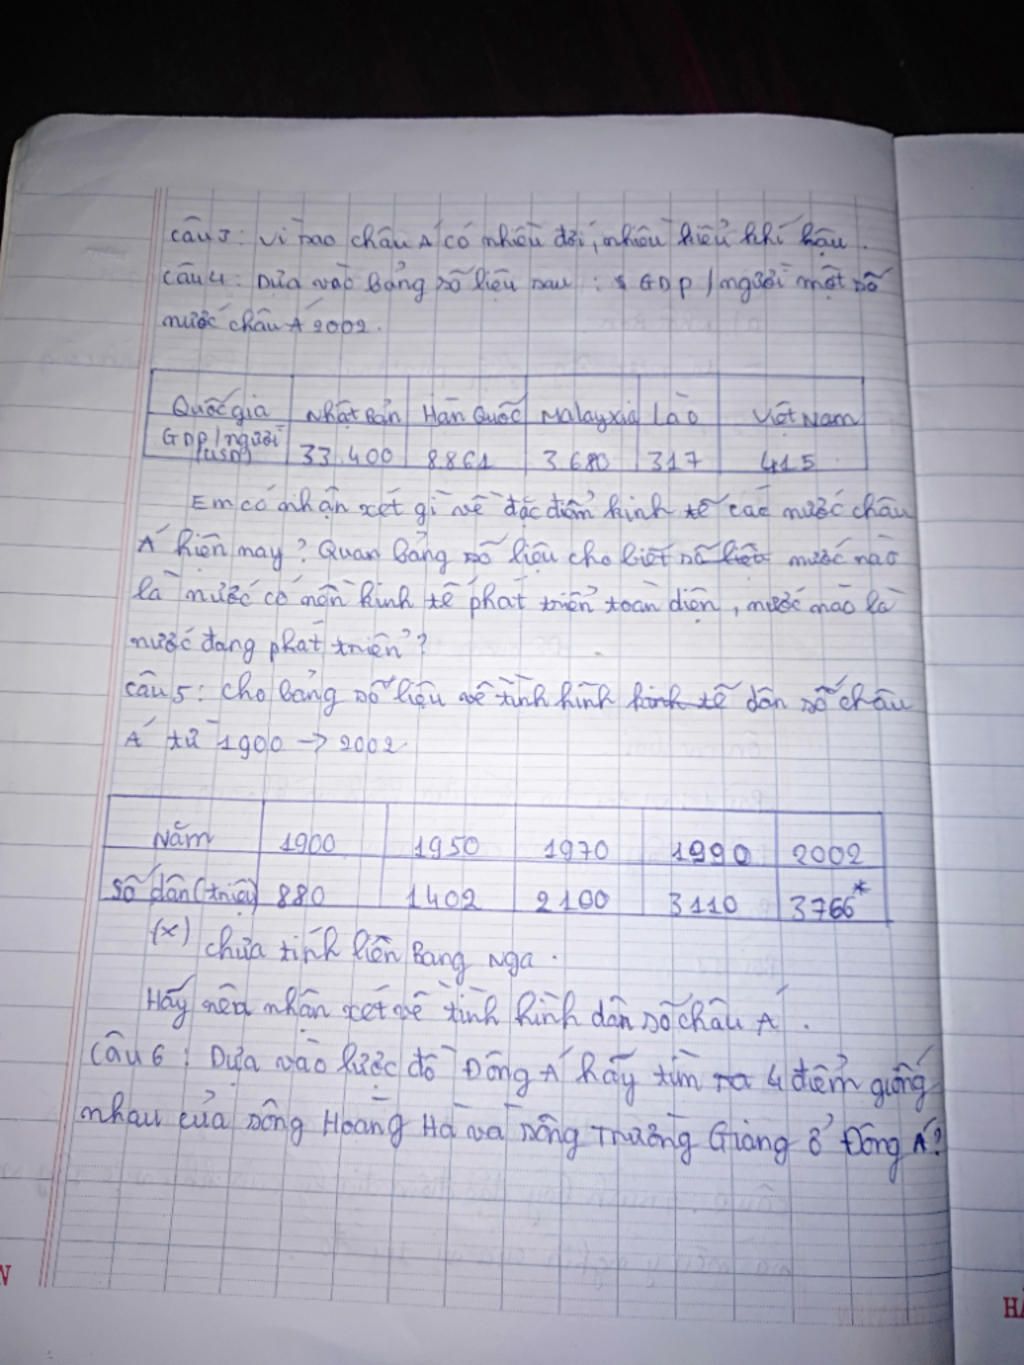 Câu 3: Vì sao châu Á có nhiều đới, nhiều kiểu khí hậu.
Câu 4: Dựa vào bảng số liệu sau: GDP/người một số
nước châu Á 2002.
Quốc gia Nhật Bản Hàn Quốc Malayxia Lào Việt Nam
GDP/người (USD) 33.400 8.861 3.680 317 415
Em có nhận xét gì về đặc điểm kinh tế các nước châu
Á hiện nay? Quan bảng số liệu cho biết số liệu nước nào
là nước có nền kinh tế phát triển toàn diện, nước nào là
nước đang phát triển?
Câu 5: Cho bảng số liệu về tình hình kinh tế dân số châu
Á từ 1900 → 2002.
Năm 1900 1950 1970 1990 2002
Số dân (triệu) 880 1402 2100 3110 3766*
(x) chưa tính liên Bang Nga.
Hãy nêu nhận xét về tình hình dân số châu Á.
Câu 6: Dựa vào lược đồ Đông Á hãy tìm ra 4 điểm giống
nhau của sông Hoàng Hà và sông Trường Giang ở Đông Á?
N
HẢ